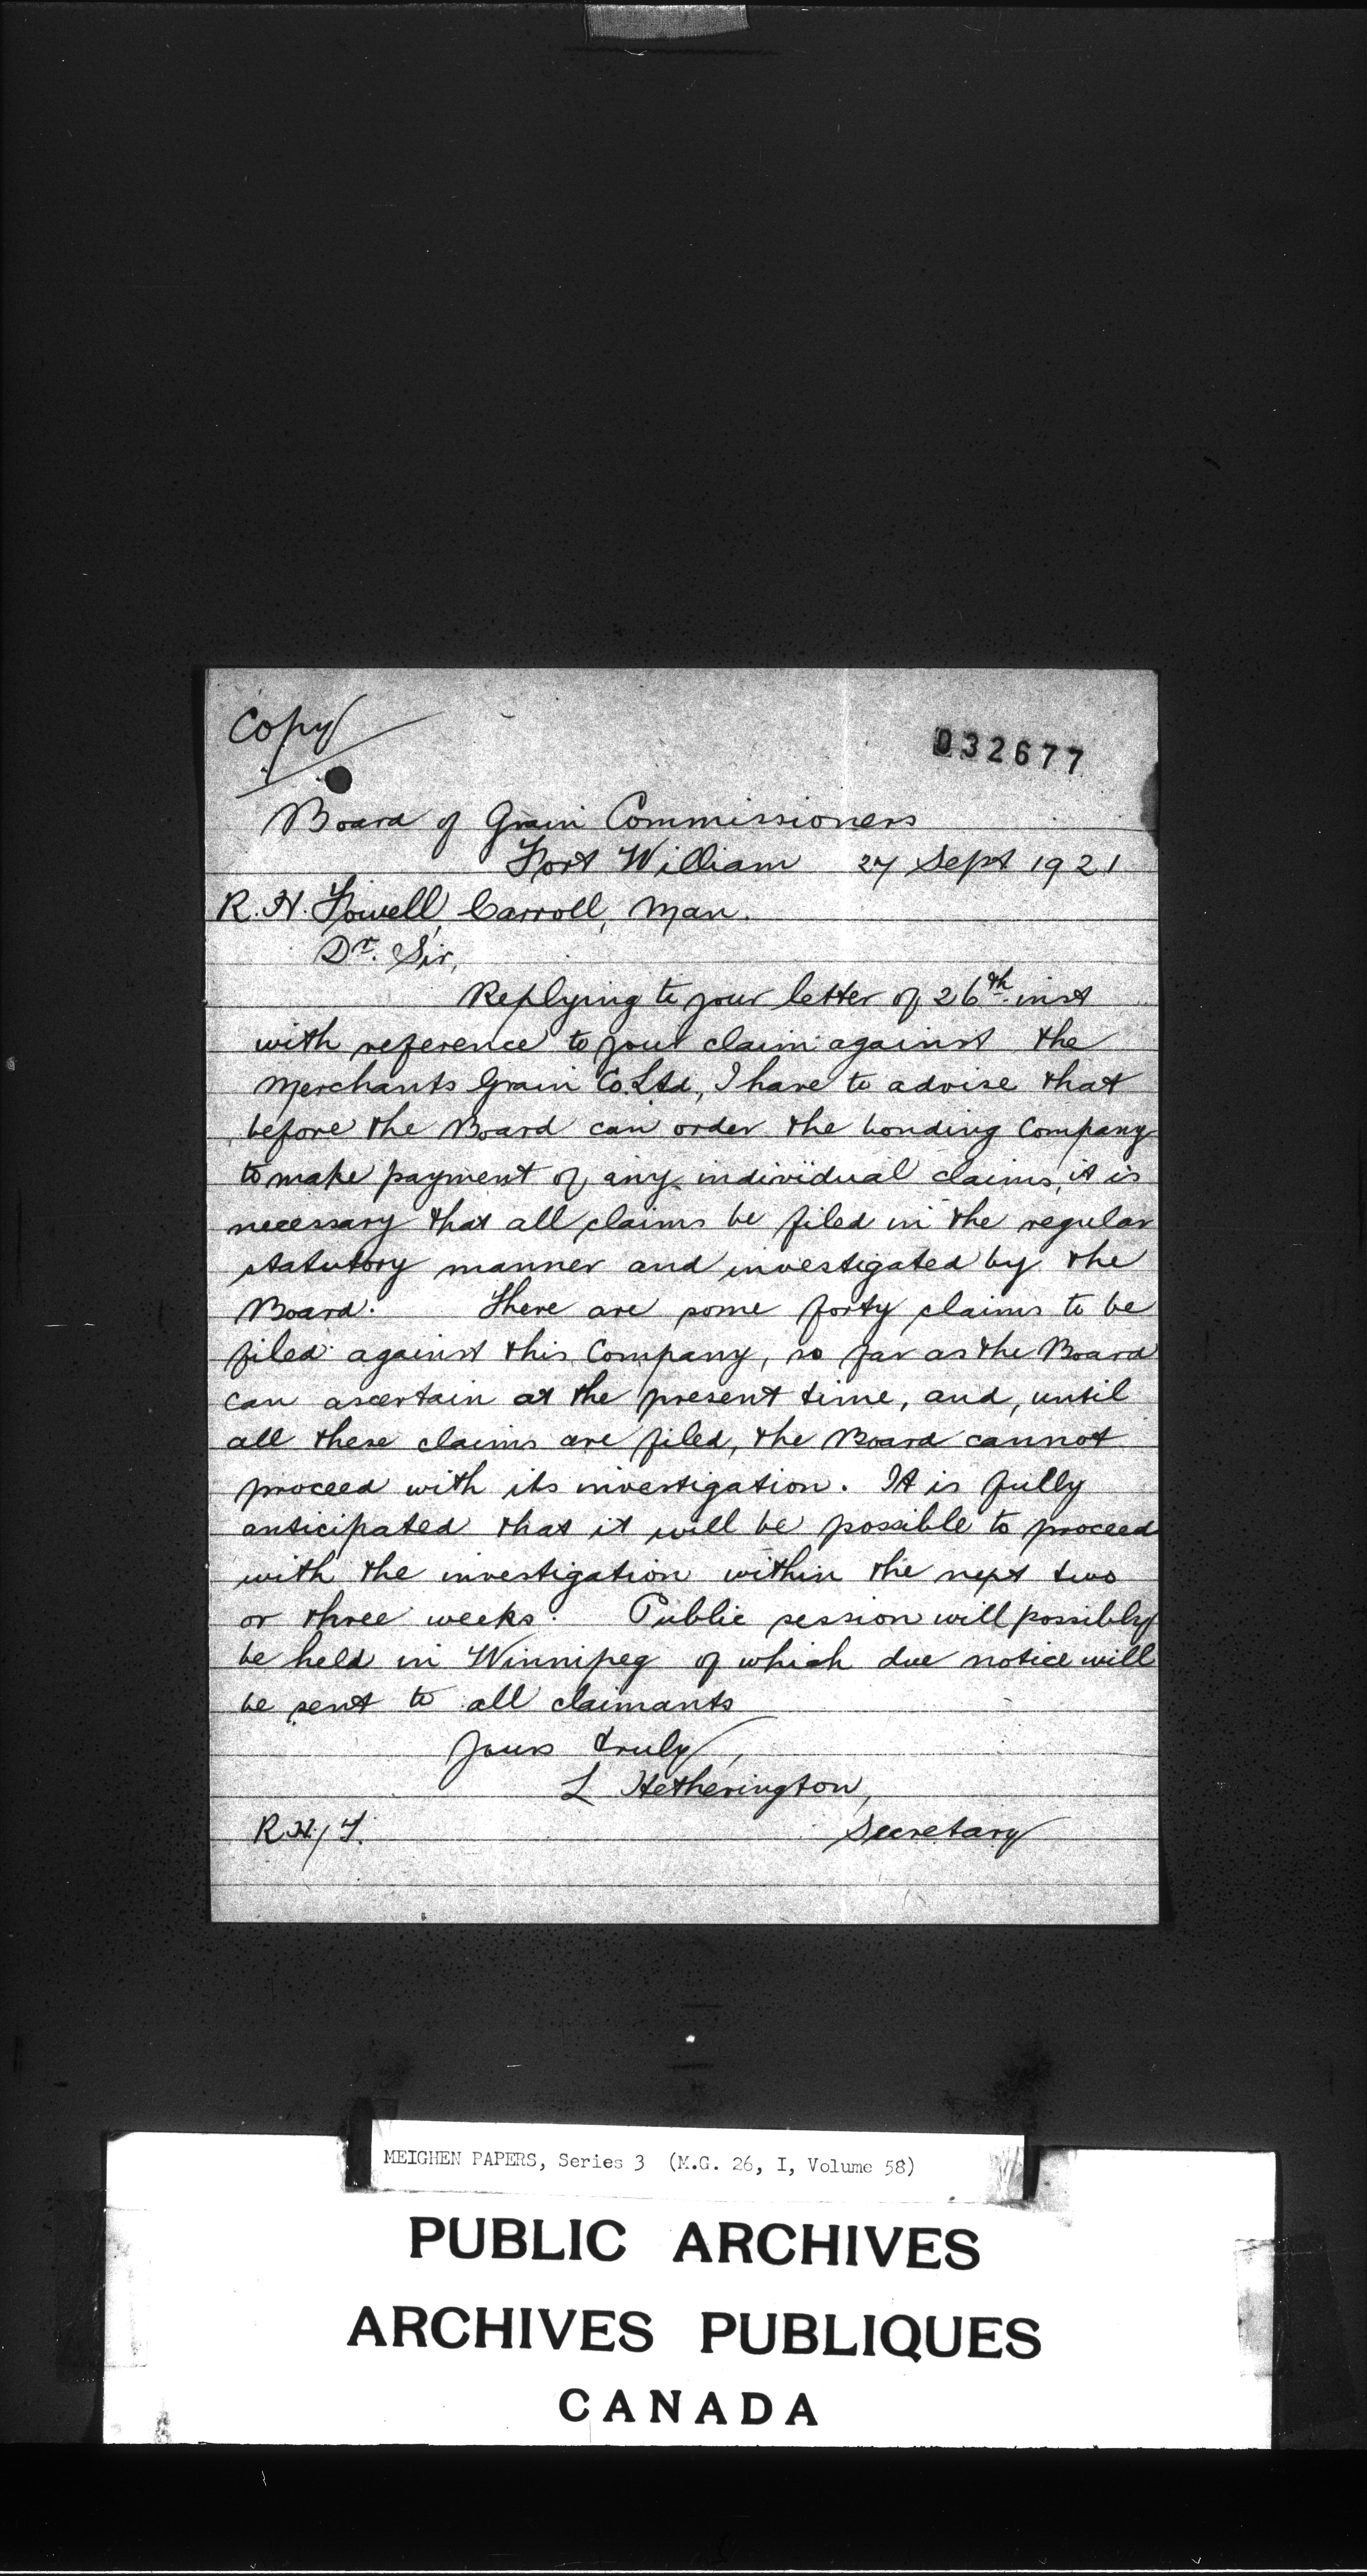 Copy
032677
Board of Grain Commissioners
Fort William 27 Sept 1921
R. H. Fowell, Carroll, Man.
Dr. Sir,
Replying to your letter of 26th inst
with reference to your claim against the
Merchants Grain Co. Ltd, I have to advise that
before the Board can order the bonding Company
to make payment of any individual claims, it is
necessary that all claims be filed in the regular
statutory manner and investigated by the
Board. There are some forty claims to be
filed against this Company, so far as the Board
can ascertain at the present time, and, until
all these claims are filed, the Board cannot
proceed with its investigation. It is fully
anticipated that it will be possible to proceed
with the investigation within the next two
or three weeks. Public session will possibly
be held in Winnipeg of which due notice will
be sent to all claimants
Yours truly,
L Hetherington,
R.H./F. Secretary
MEIGHEN PAPERS, Series 3 (M.G. 26, I, Volume 58)
PUBLIC ARCHIVES
ARCHIVES PUBLIQUES
CANADA